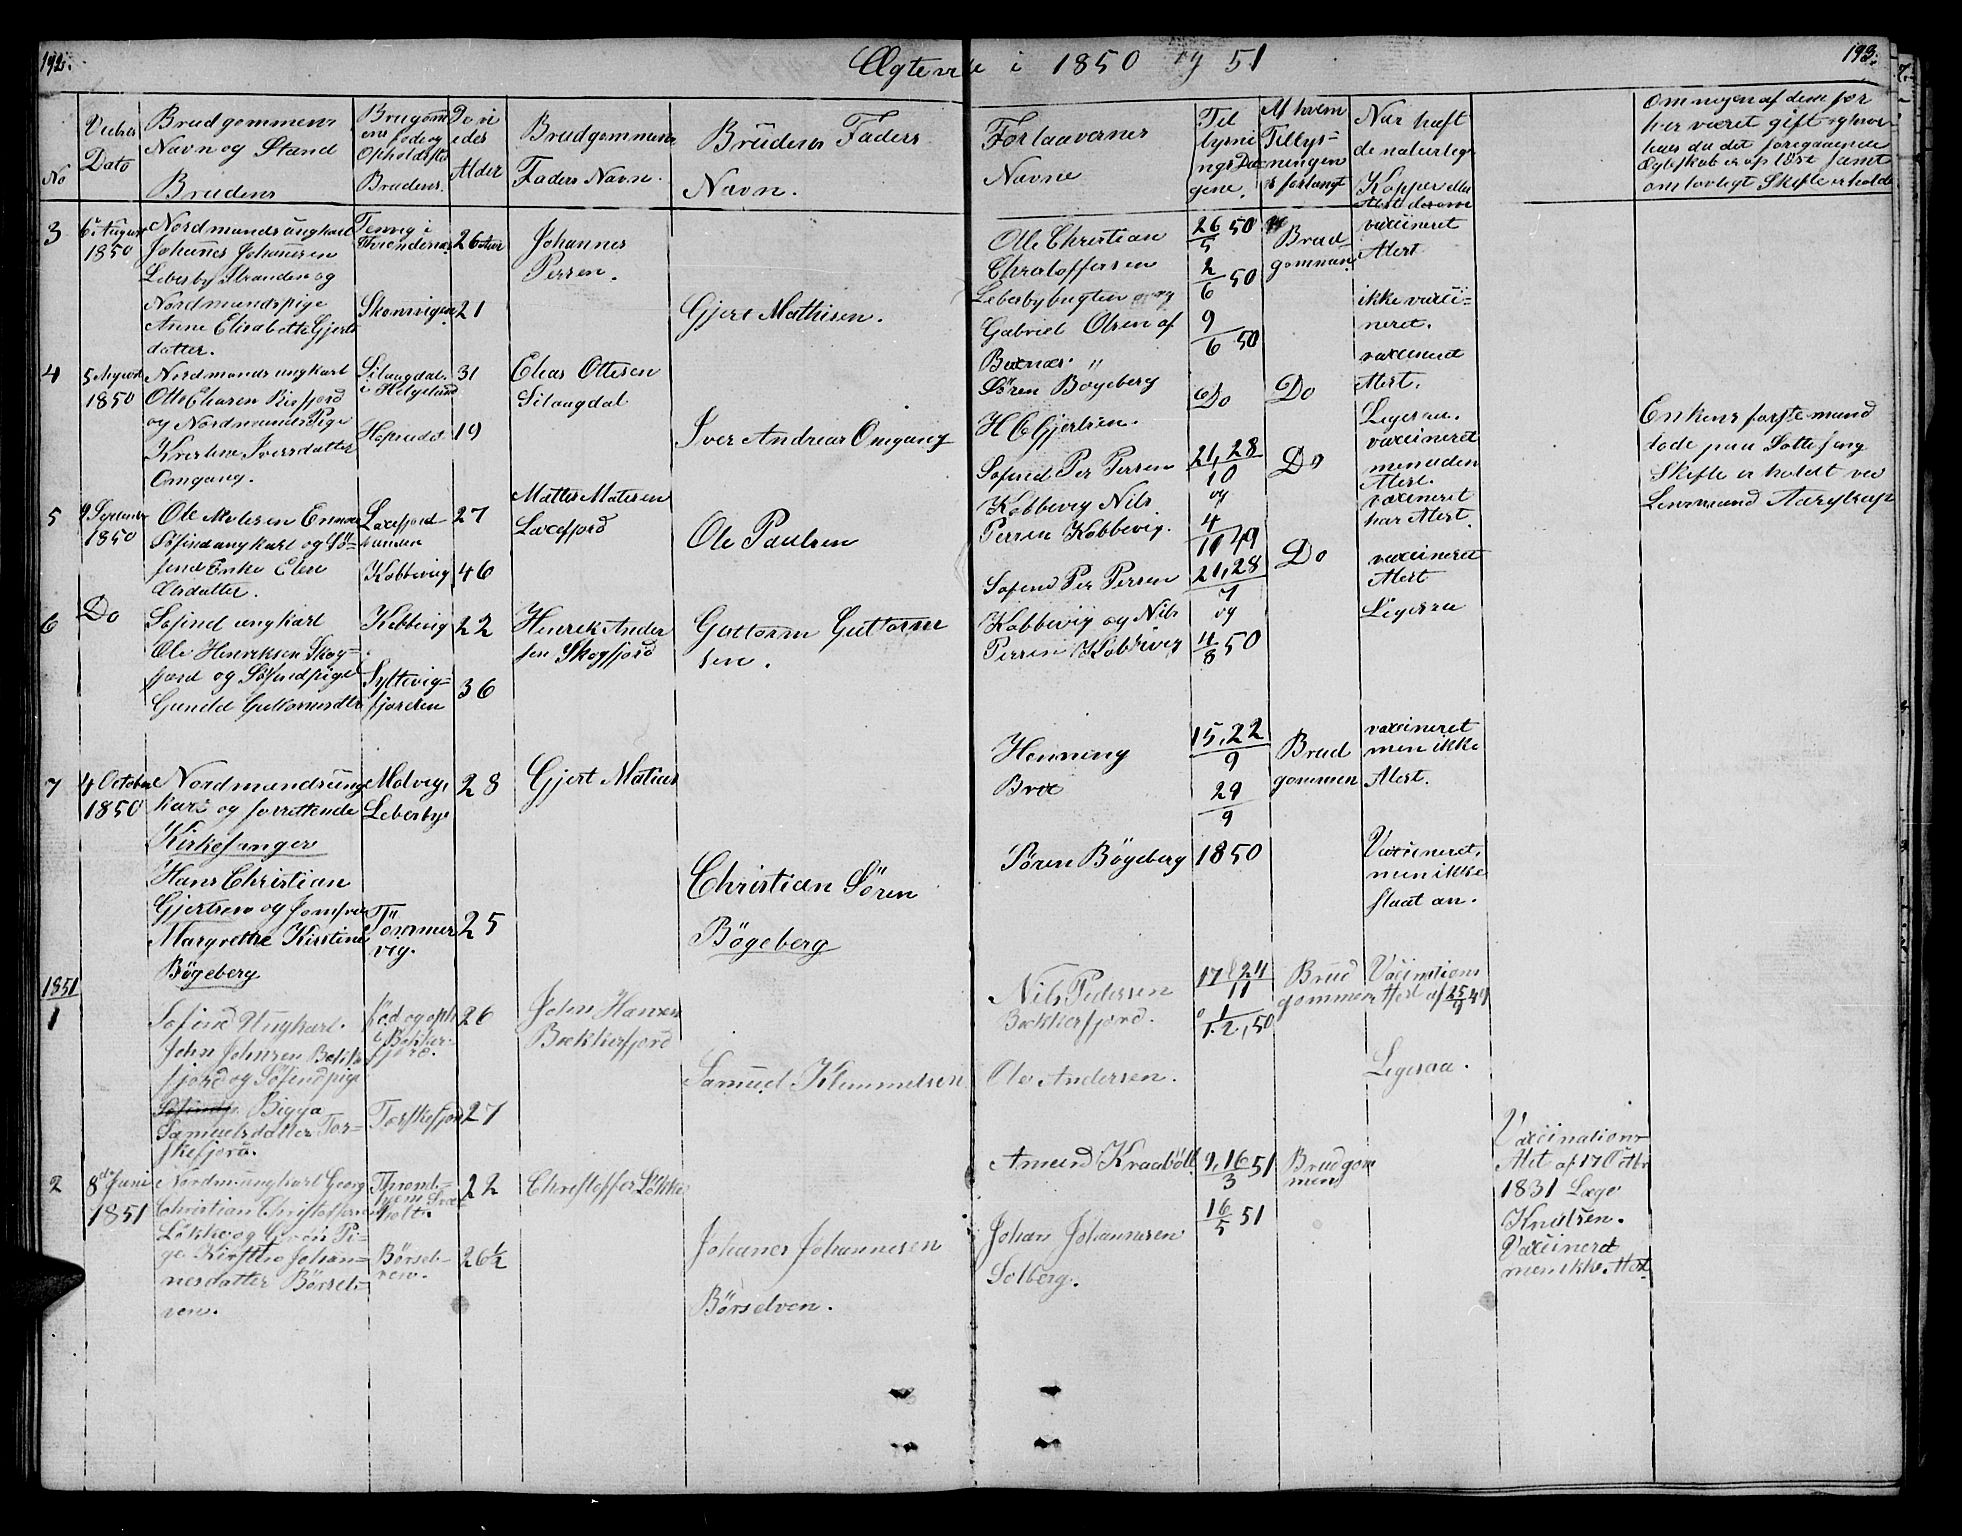 192.
Ægteviede i 1850 og 51
193.
No
Vielses
Dato
Brudgommens
Navn og Stand
Brudens
Brudgom
ens føde og
Opholdsste
Brudens.
De vi
edes
Alder
Brudgommens
Faders Navn.
Brudens Faders
Navn.
Forlaavernes
Navne
Til
lysni
ngs Da
gene.
Af hvem
Tillys-
ningen
er forlangt
Naar haft
de naturlige
Kopper eller
Atest derom
Om nogen af dem før
har været gift og hvor
Ægteskab er opløst samt
om lovligt Skifte er holdt
3
6te August
1850
Nordmands ungkarl
Johanes Johannesen
Lebesby Stranden og
Nordmandspige
Anne Elisabethe Gjerts
datter.
Tennes i
Skonvigen
26 Aar
21
Johannes
Persen.
Gjert Mathisen.
Ole Christian
Christoffersen
Lebesbybugten og
Gabriel Olsen af
26/5 50
2/6 50
9/6 50
Brud
gommen
vaxcineret
Atest
ikke vaxci=
neret.
4
5 August
1850
Nordmands ungkarl
Otte Eliasen
og Nordmands Pige
Kirstine Iversdatter
Omgang.
i Helgeland
Hopseidet
31
19
Elias Ottesen
Silaagdal
Iver Andreas Omgang
Søren Bøgeberg
H C Gjertsen.
Do
Do
vaxcineret
Atest.
Ligesaa.
5
9 September
1850
Ole Matesen
Søfind ungkarl og Sø=
find Enke Elen
Olsdatter.
Laxefjord
bunden
Kobbevig
27
46
Mattis Matesen
Laxefjord
Ole Paulsen
Søfind Per Persen
Kobbevig Nils
Persen Kobbevig.
21, 28/10
og
4/11 49
Do
vaxcineret
men uden
Atest.
vaxcineret
har Atest
Enkens første mand
døde paa
Skifte er holdt ved
Lensmand
6
Do
Søfind ungkarl
Ole Henriksen Skog=
fjord og Søfindpige
Gunild Guttormsdtr
Kobbevig
Syltevig=
fjorden
22
36
Henrik Ander
sen Skogfjord
Guttorm Guttorm
sen.
Søfind Per Persen
Kobbevig og Nils
Persen Kobbevig
21,28/7
og
11/8 50
Do
vaxcineret
Atest
Ligesaa
7
4 October
1850
Nordmands ung
karl og forrettende
Kirkesanger
Hans Christian
Gjertsen og Jomfru
Margrethe Kirstine
Bøgeberg
Molvig,
Lebesbye
Tømmer
vig.
28
25
Gjert Matias
Christian Søren
Bøgeberg
Henning
Søren Bøgeberg
15,22/9
29/9
1850
Brud
gommen
vaxcineret
men ikke
Atest.
Vaxcineret,
men ikke
slaaet an.
1851
1
Søfind Ungkarl.
John Johnsen Bekke
fjord og Søfindpige
Bigga
Samuelsdatter Tor-
skefjord.
Fød og oph
i Bekker-
fjord.
Torskefjord
26
27
John Hansen
Bekkerfjord
Samuel Klemmetsen
Nils Pedersen
Bekkerfjord.
Ole Andersen.
17 & 24/11
1/12, 50
Brud
gommen
Vaxinations
Atest af 25/9 49
Ligesaa.
2
8de Juni
1851
Nordm. ungkarl Georg
Christian Christoffersen
Løkke og Qvæn Pi-
ge Kirsthe Johan=
nesdatter Børsel=
ven.
Thrond-
hjem
Børsel-
ven.
22
26½
Christoffer Løkke
Johanes Johannesen
Børselven.
Amund Kraabøll
Johan Johannesen
Solberg.
9, 16/3 51
16/5 51
Brudgom
men
Vaxcinations
Atest af 17 Octbr
1831 Læge
Knudsen.
Vaxcineret
men ikke Atest